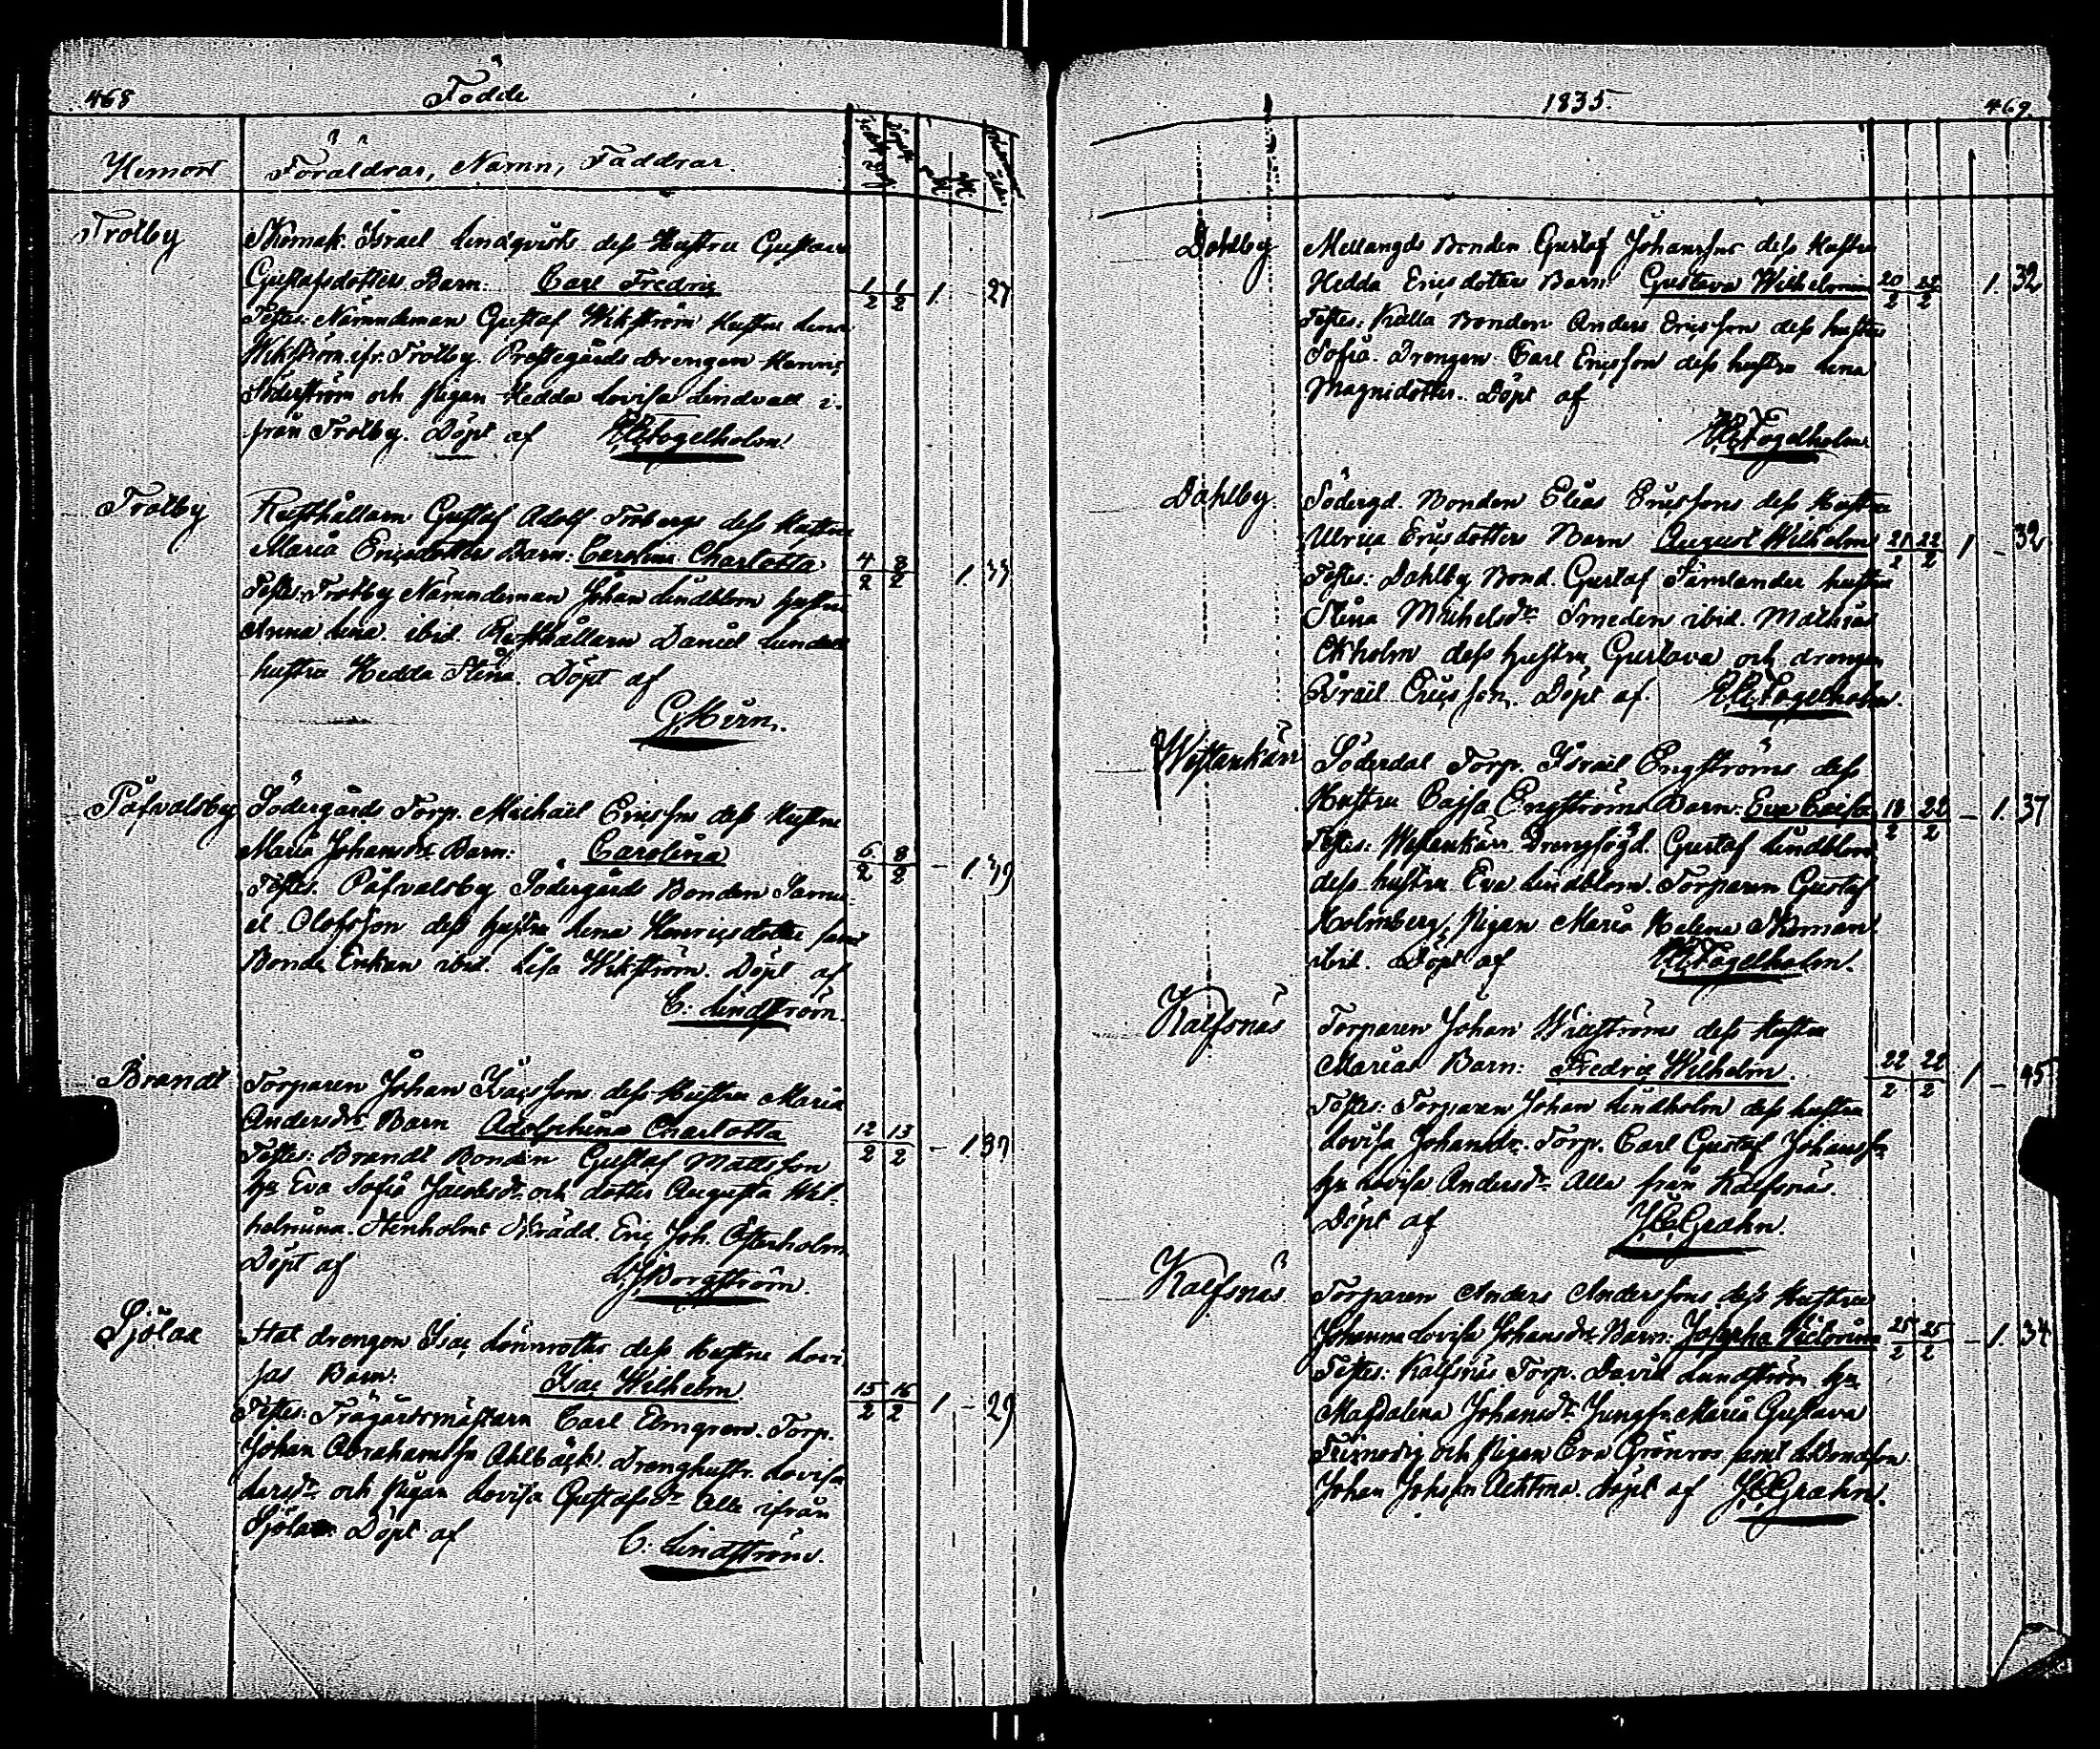 468
Födde
Hemort
Föräldrar, Namn, Faddrar.
Trotby
Skomak. Israel Lindqvists dess Hustru Gustava
Gustafsdotters Barn: Carl Fredric
1/2 1/2 1. 27
Testes: Nämndeman Gustaf Wikström Hustru Lena
Wikström ifr. Trotby. Prestegårds drengen Henric
Söderström och pigan Hedda Lovisa Lindvall i-
från Trotby. Döpt af Fogelholm.
Trotby
Rusthållarn Gustaf Adolf Frobergs dess Hustru
Maria Ericsdotters Barn: Carolina Charlotta
4/2 8/2 1. 33
Testes: Trotby Nämndeman Johan Lindblom hustru
Anna Lena ibid. Rusthållarn Daniel
hustru Hedda Stina. Döpt af
G. Hirn.
Påfvalsby
Södergårds Torp. Michaël Ericssons dess Hustru
Maria Johansdrs Barn: Carolina
6/2 8/2 - 1. 39
Testes. Påfvalsby Södergårds Bonden Samu-
el Olofsson dess hustru Lena Henricsdotter samt
Bonde Enkan ibid. Lisa Wikström. Döpt af
C: Lindström.
Brandt
Torparen Johan Isacssons dess Hustru Maria
Andersdrs Barn Adolphina Charlotta
12/2 13/2 - 1. 37
Testes: Brandt Bonden Gustaf Mattsson
hu Eva Sofia Jacobsdr och dotter Augusta Wil-
helmina. Stenholms Skrädd. Eric Joh. Österholm
Döpt af Borgström.
Sjölax
Stat drengen Isac Lönnrothes dess Hustru Lovi-
sas Barn: Isac Wilhelm
15/2 16/2 1 - 29
Testes: Trägårdsmästarn Carl Elmgren. Torp.
Johan Abrahamssn Ahlbäck. Drenghustr. Lovisa
Larsdr och pigan Lovisa Gustafsdr Alla ifrån
Sjölax Döpt af C: Lindström.
1835.
469.
Dahlby
Mellangds Bonden Gustaf Johanssons dess Hustru
Hedda Ericsdotters Barn: Gustava Wilhelmina
20/2 22/2 1. 32
Testes: Källa Bonden Anders Ericsson dess hustru
Sofia. Drengen Carl Ericsson dess hustru Lena
Magnidotter. Döpt af
Fogelholm
Dahlby
Södergd. Bonden Elias Ericssons dess Hustru
Ulrica Ericsdotters Barn August Wilhelm
21/2 22/2 1 - 32
Testes: Dahlby Bond. Gustaf hustru
Stina Michelsdr Smeden ibid. Mathias
Ekholm dess hustru Gustava och drengen
Israel Ericsson. Döpt af Fogelholm.
Westankärr
Söderdal Torp. Israël Engströms dess
Hustru Cajsa Engströms Barn: Eva Caisa
18/2 22/2 - 1. 37
Testes: Westankärr Drengfogd. Gustaf Lindblom
dess hustru Eva Lindblom. Torparen Gustaf
Holmberg, pigan Maria Helena Skoman
ibid. Döpt af Fogelholm.
Kalfsnäs
Torparen Johan Wickströms dess Hustru
Marias Barn: Fredric Wilhelm.
22/2 22/2 1 - 45
Testes: Torparen Johan Lindholm dess hustru
Lovisa Johansdr. Torp. Carl Gustaf Johanssn
hu Lovisa Andersdr Alla från Kalfsnäs.
Döpt af J.C. Grahn.
Kalfsnäs
Torparen Anders Anderssons dess Hustru
Johanna Lovisa Johansdrs Barn: Josepha Victorina
25/2 25/2 - 1. 34
Testes: Kalfsnäs Torp. David Lundström hu
Magdalena Johansdr Jungfn Maria Gustava
Frimodig och pigan Eva Grönroos samt
Johan Johssn Döpt af J.C. Grahn.